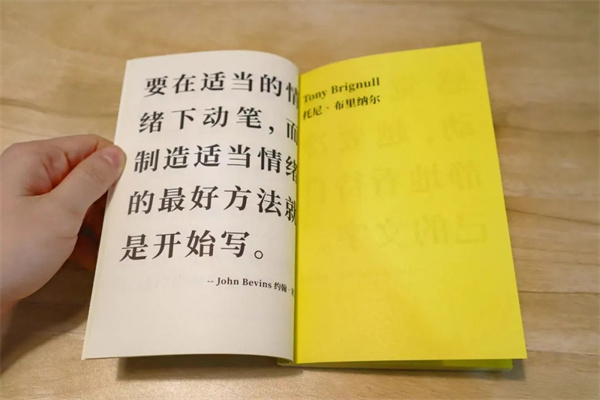 要在适当的情
绪下动笔，而
制造适当情绪
的最好方法就
是开始写。
-- John Bevins 约翰·
Tony Brignull
托尼·布里纳尔